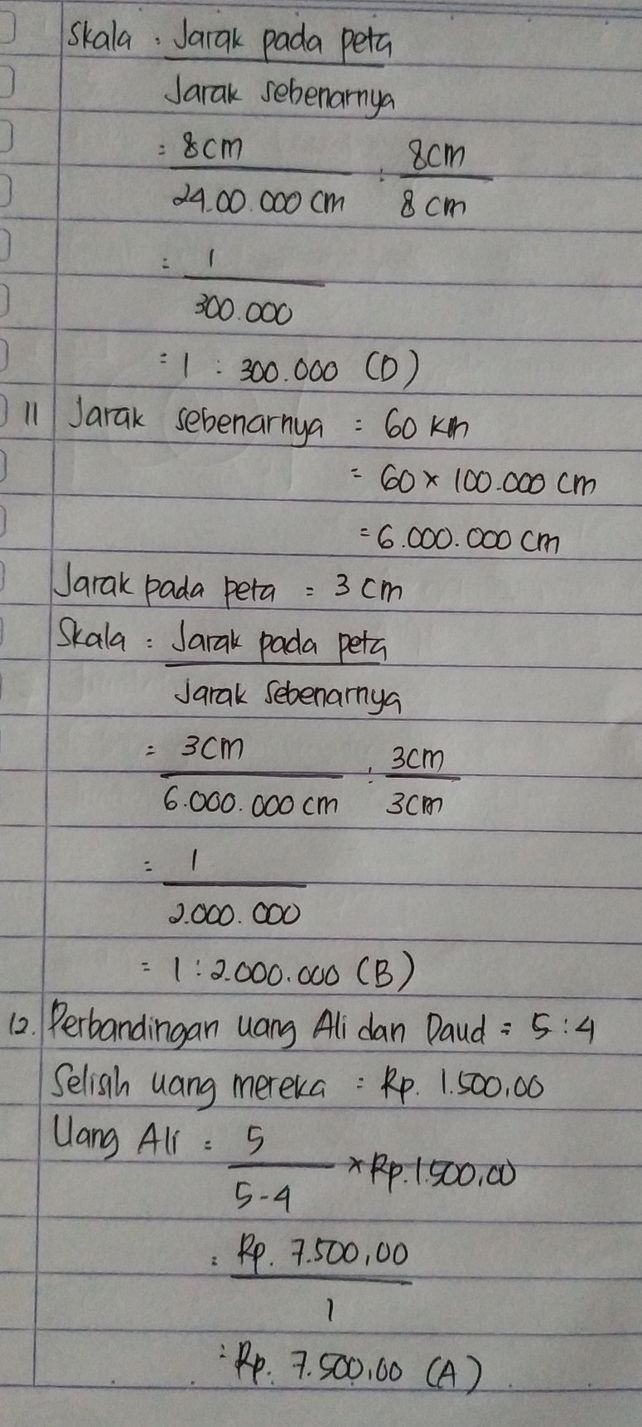 Skala : Jarak pada peta
Jarak sebenarnya
= 8cm : 8cm
24.00.000 cm 8 cm
= 1
300.000
= 1 : 300.000 (D)
11 Jarak sebenarnya = 60 km
= 60 × 100.000 cm
= 6.000.000 cm
Jarak pada peta = 3 cm
Skala = Jarak pada peta
Jarak sebenarnya
= 3cm : 3cm
6.000.000 cm 3cm
= 1
2.000.000
= 1 : 2.000.000 (B)
12. Perbandingan uang Ali dan Daud = 5 : 4
Selisih uang mereka = Rp. 1.500,00
Uang Ali = 5 × Rp. 1.500,00
5-4
= Rp. 7.500,00
1
= Rp. 7.500,00 (A)